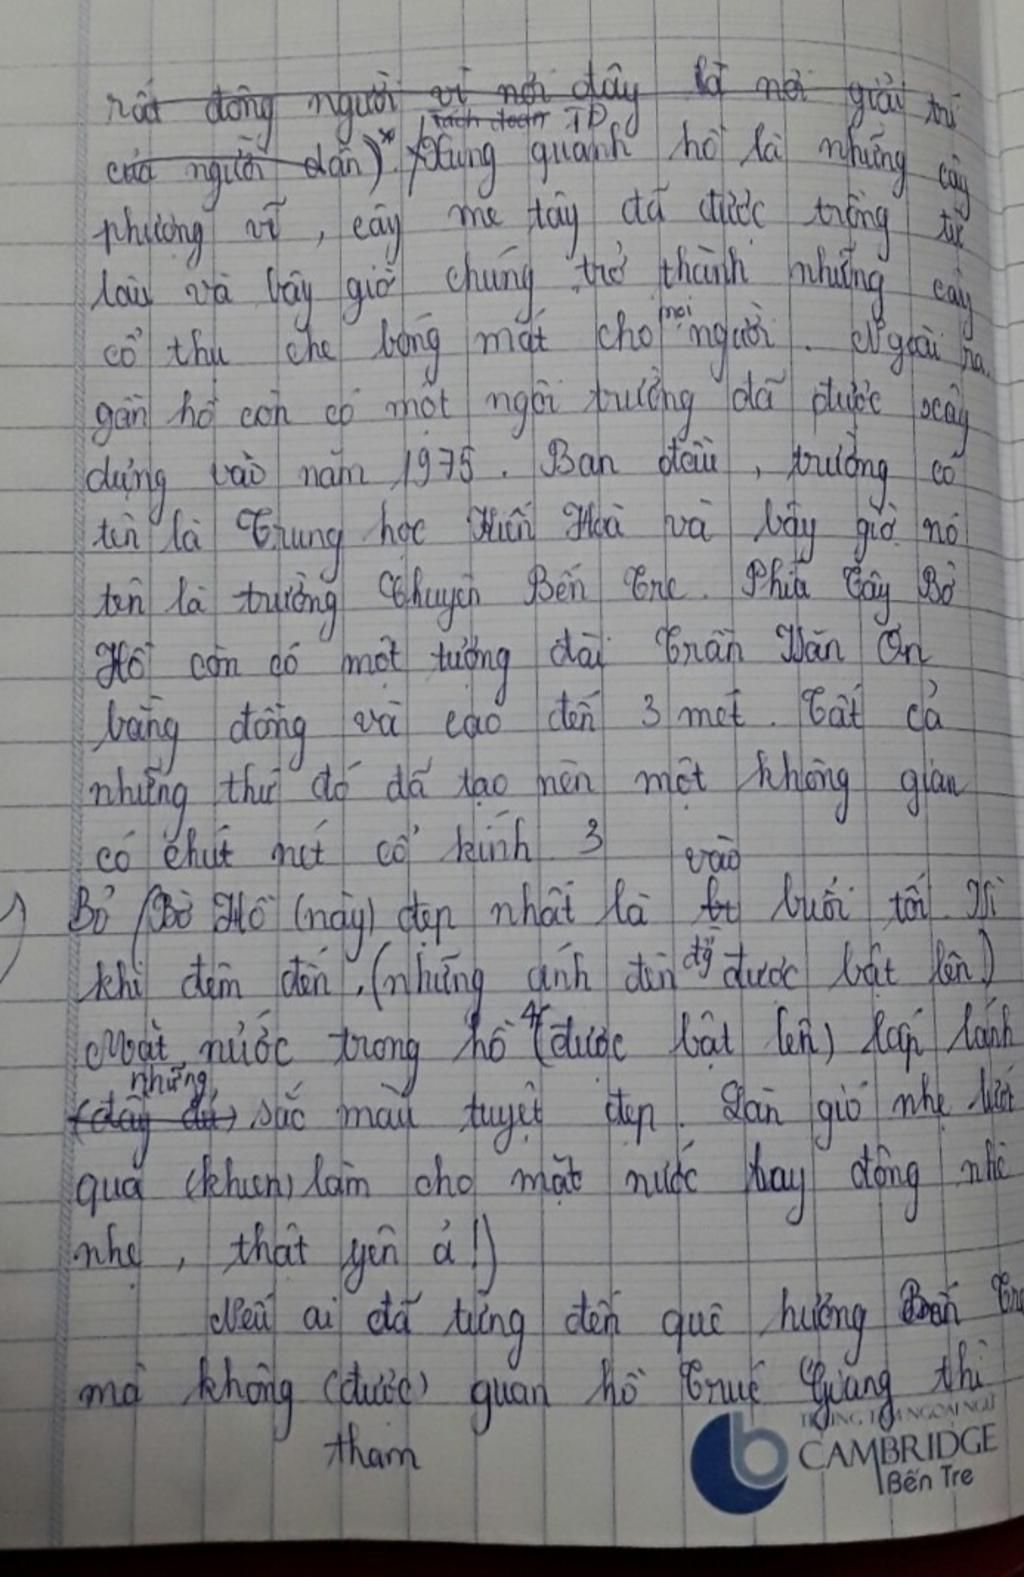 rất đông người vì nơi đây là nơi giải trí
tách đoạn TD
của người dân)* Xung quanh hồ là những cây
phượng vĩ, cây me tây đã được trồng từ
lâu và bây giờ chúng trở thành những cây
cổ thụ che bóng mát cho mọi người. Ngoài ra,
gần hồ còn có một ngôi trường đã được xây
dựng vào năm 1975. Ban đầu, trường có
tên là Trung học Kiến Hoà và bây giờ nó
tên là trường Chuyên Bến Tre. Phía Tây Bờ
Hồ còn có một tượng đài Trần Văn Ơn
bằng đồng và cao đến 3 mét. Tất cả
những thứ đó đã tạo nên một không gian
có chút nét cổ kính 3
vào
Bỏ Bờ Hồ (này) đẹp nhất là buổi tối. Vì
khi đêm đến, (những ánh đèn đã được bật lên)
Mặt nước trong hồ 4(được bật lên) lấp lánh
những
(đầy đủ) sắc màu tuyệt đẹp. Làn gió nhẹ lướt
qua (khẽ) làm cho mặt nước lay động nhè
nhẹ, thật yên ả!)
Nếu ai đã từng đến quê hương Bến Tre
mà không (được) quan hồ Trúc Giang thì
tham
TRUNG TÂM NGOẠI NGỮ
CAMBRIDGE
Bến Tre